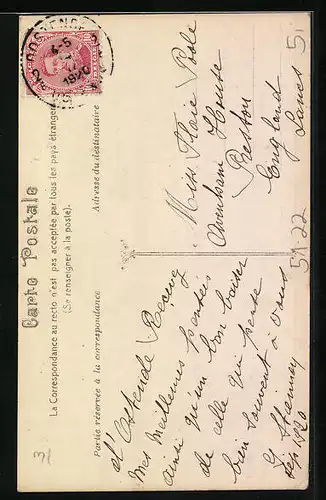 Carte Postale
La Correspondance au recto n'est pas acceptée par tous les pays étrangers
(Se renseigner à la poste).
Partie réservée à la correspondance
Adresse du destinataire
OOSTENDE
4-5
1920
d'Ostende Recevez
mes meilleures pensées
ainsi qu'un bon baiser
de celle qui pense
bien souvent à vous
Sep. 1920
Miss Florie Poole
Avenham House
Preston
England
Lancs
5122
5
3/